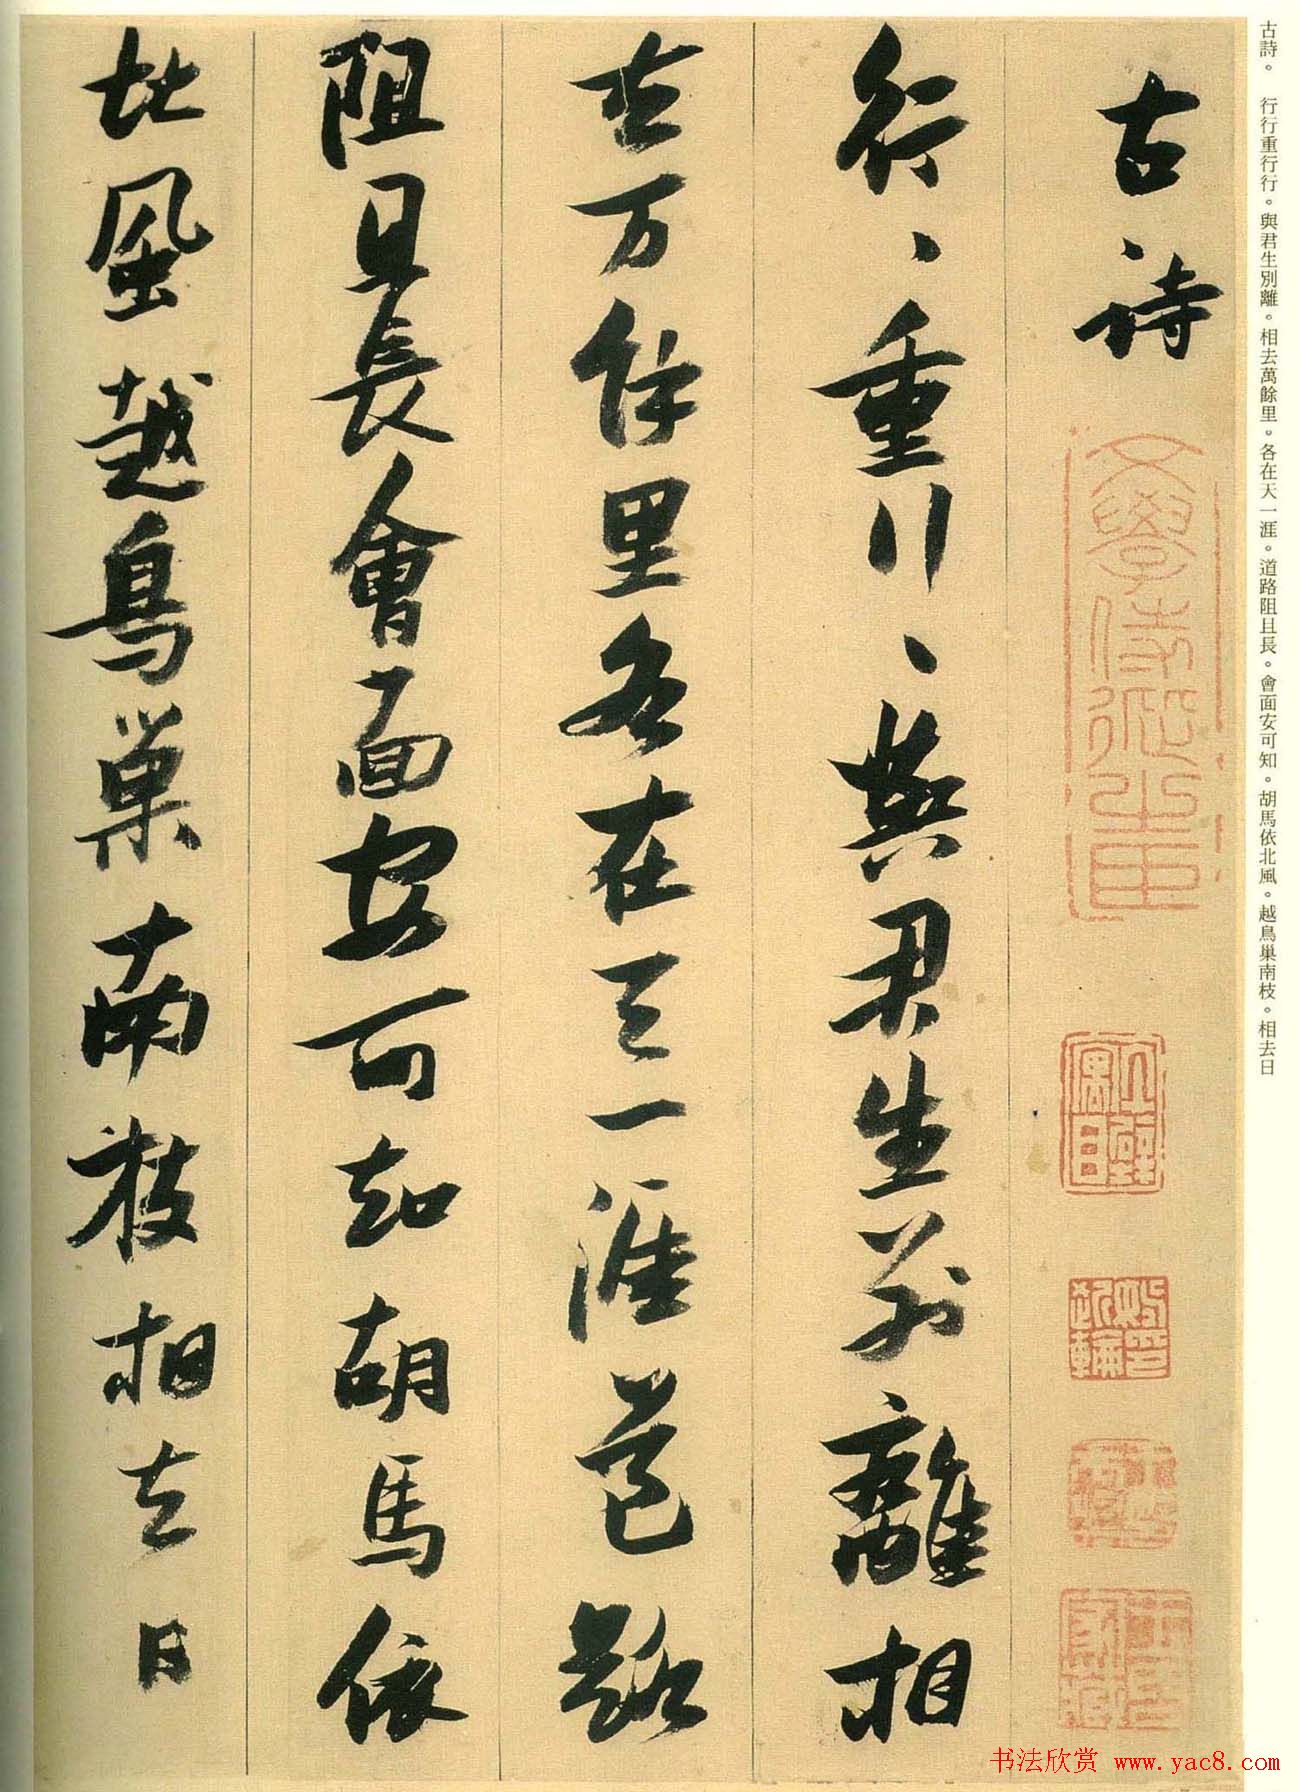 古詩。 行行重行行。與君生別離。相去萬餘里。各在天一涯。道路阻且長。會面安可知。胡馬依北風。越鳥巢南枝。相去日
古詩
行、重行、與君生別離相
去万餘里各在天一涯道路
阻且長會面安可知胡馬依
北風越鳥巢南枝相去日
书法欣赏 www.yac8.com